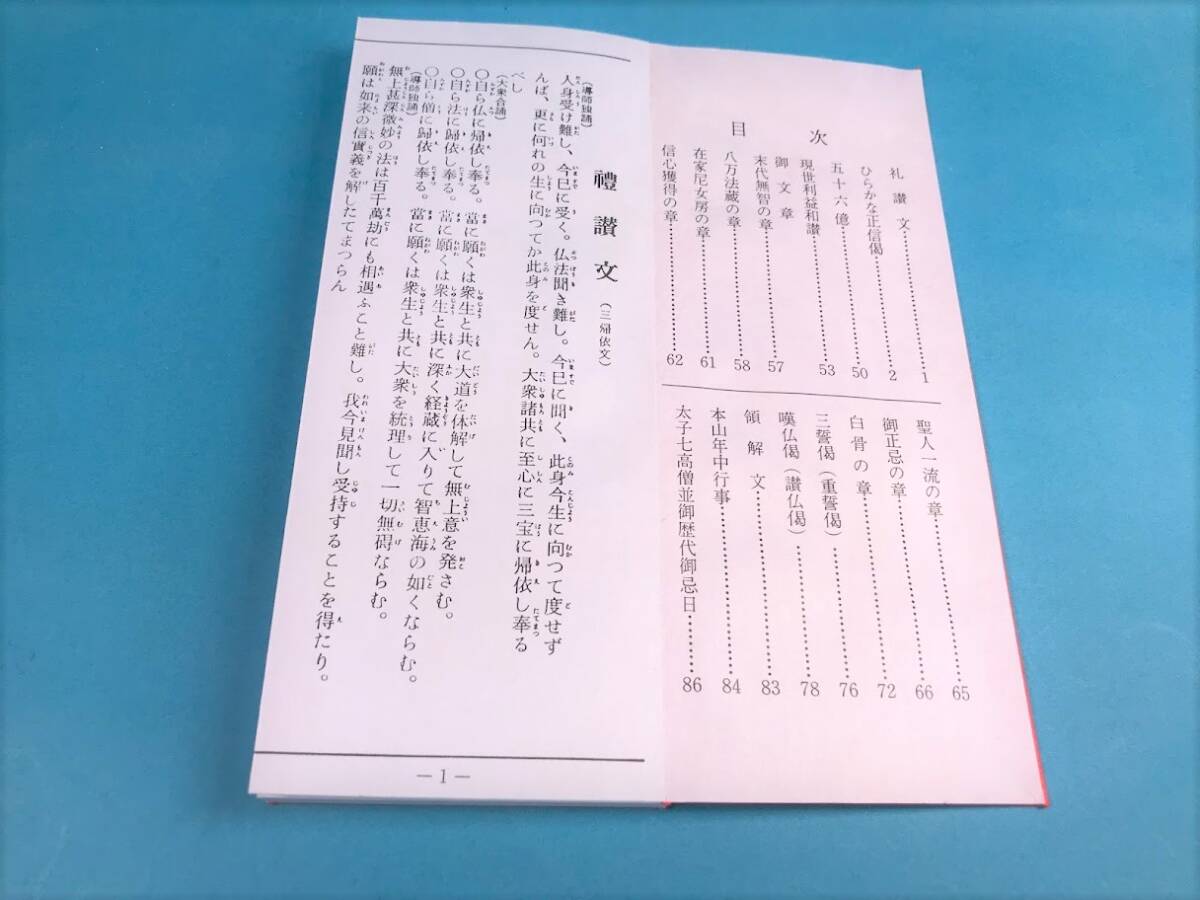 目次
礼讃文……1
ひらかな正信偈……2
五十六億……50
現世利益和讃……53
御文章
末代無智の章……57
八万法蔵の章……58
在家尼女房の章……61
信心獲得の章……62
聖人一流の章……65
御正忌の章……66
白骨の章……72
三誓偈（重誓偈）……76
嘆仏偈（讃仏偈）……78
領解文……83
本山年中行事……84
太子七高僧並御歴代御忌日……86
禮讃文（三帰依文）
（導師独誦）
人身受け難し、今巳に受く。仏法聞き難し。今巳に聞く、此身今生に向つて度せず
んば、更に何れの生に向つてか此身を度せん。大衆諸共に至心に三宝に帰依し奉る
べし
（大衆合誦）
〇自ら仏に帰依し奉る。當に願くは衆生と共に大道を体解して無上意を発さむ。
〇自ら法に帰依し奉る。當に願くは衆生と共に深く経蔵に入りて智恵海の如くならむ。
〇自ら僧に帰依し奉る。當に願くは衆生と共に大衆を統理して一切無碍ならむ。
（導師独誦）
無上甚深微妙の法は百千萬劫にも相遇ふこと難し。我今見聞し受持することを得たり。
願は如来の信實義を解したてまつらん
—1—